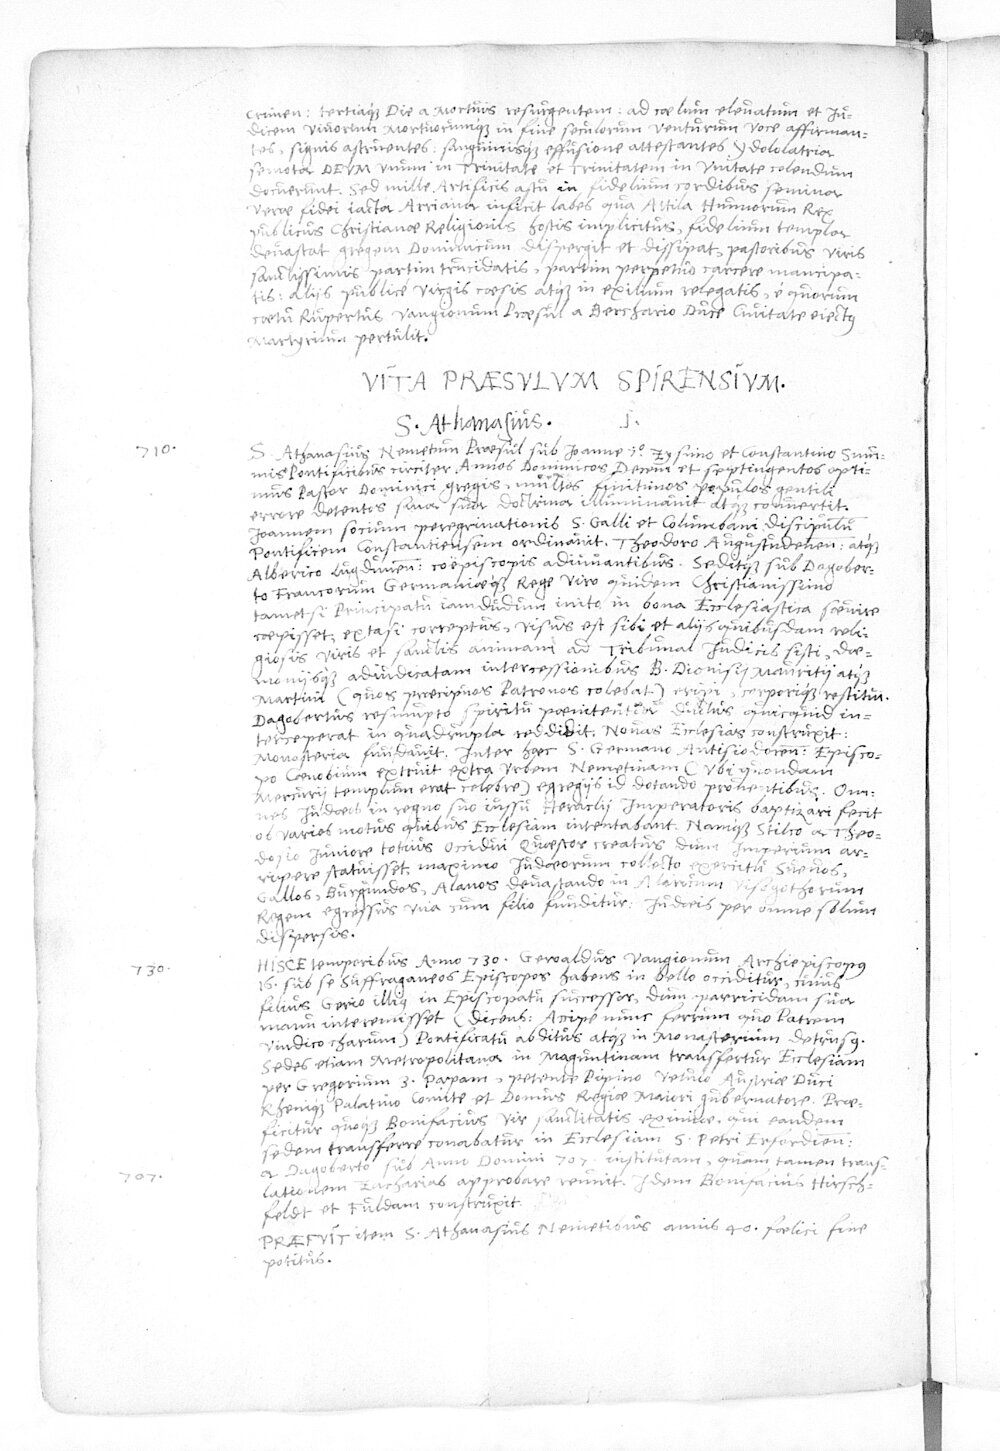 crimen: tertiaq₃ Die a Mortuis resurgentem: ad cœlum eleuatum et Iu-
dicem Viuorum Mortuorumq₃ in fine seculorum venturum Voce affirman-
tes, signis astruentes: sanguinisq₃ effusione attestantes Ydololatria
semota DEVM Vnum in Trinitate et Trinitatem in Vnitate colendum
docuerunt. Sed mille Artificis astu in fidelium cordibus semina
Veræ fidei iacta Arriana inficit labes qua Attila Hunnorum Rex
publicus Christianæ Religionis hostis implicitus, fidelium templa
deuastat gregem Dominicum dispergit et dissipat, pastoribus Viris
sanctissimis partim trucidatis, partim perpetuo carcere mancipa-
tis: alijs publice Virgis cæsis atq₃ in exilium relegatis, é quorum
cœtu Rupertus Vangionum Præsul a Berchario Duce Ciuitate eiectꝰ
Martyrium pertulit.
VITA PRÆSVLVM SPIRENSIVM.
S. Athanasius. 1.
710. S. Athanasius Nemetum Præsul sub Joanne 7º Zysinio et Constantino Sum-
mis Pontificibus circiter Annos Dominicos Decem et septingentos opti-
mus Pastor Dominici gregis, multos finitimos populos gentili
errore detentos sana sua doctrina illuminauit atq₃ conuertit.
Joannem socium peregrinationis S. Galli et Columbani discipulū
Pontificem Constantiensem ordinauit. Theodoro Augustudenēn: atq₃
Alberico Lugdunēn: coëpiscopis adiuuantibus. Seditq₃ sub Dagober-
to Francorum Germaniæq₃ Rege Viro quidem Christianissimo
tametsi Principatu iamdudum inito in bona Ecclesiastica sæuire
cœpisset, extasi correptus, visus est sibi et alijs quibusdam reli-
giosis viris et sanctis animam ad Tribunal Judicis sisti, dæ-
monijsq₃ adiudicatam intercessionibus B. Dionisij Mauritij atq₃
Martini (quos præcipuos Patronos colebat) eripi, corporiq₃ restitui.
Dagobertus resumpto spiritu pœnitentia ductus quicquid in-
terceperat in quadrupla reddidit. Nouas Ecclesias construxit:
Monasteria fundauit. Inter hæc S. Germano Antisiodorēn: Episco-
po Cœnobium extruit extra Vrbem Nemetinam (Vbi quondam
Mercurij templum erat celebre) egregijs id dotando prouentibus. Om-
nes Judæos in regno suo iussu Heraclij Imperatoris baptizari fecit
ob varios motus quibus Ecclesiam intentabant. Namq₃ Stilco a Theo-
dosio Juniore totius Occidui Quæstor creatus dum Imperium ar-
ripere statuisset maximo Judæorum collecto exercitu Sueuos,
Gallos, Burgundos, Alanos deuastando in Alaricum Visogothorum
Regem egressus vna cum filio funditur: Judæis per omne solum
dispersis.
730. HISCE temporibus Anno 730. Geroaldus Vangionum Archiepiscopꝰ
16. sub se Suffraganeos Episcopos habens in bello occiditur, cuius
filius Gerio illiq₃ in Episcopatu successor, dum parricidam sua
manu interemisset (dicens: Accipe nunc ferrum quo Patrem
vindico charum) Pontificatu abditus atq₃ in Monasterium detrusꝰ.
Sedes etiam Metropolitana in Maguntinam transfertur Ecclesiam
per Gregorium 3. Papam, petente Pipino Vetulo Austriæ Duci
Rheniq₃ Palatino Comite et Domus Regiæ Maiori gubernatore. Præ-
ficitur quoq₃ Bonifacius vir sanctitatis eximiæ, qui eandem
sedem transferre conabatur in Ecclesiam S. Petri Erfordiēn:
707. a Dagoberto sub Anno Domini 707. institutam, quam tamen trans-
lationem Zacharias approbare renuit. Idem Bonifacius Hirsch-
feldt et Fuldam construxit.
PRÆFVIT item S. Athanasius Nemetibus annis 40. fœlici fine
potitus.